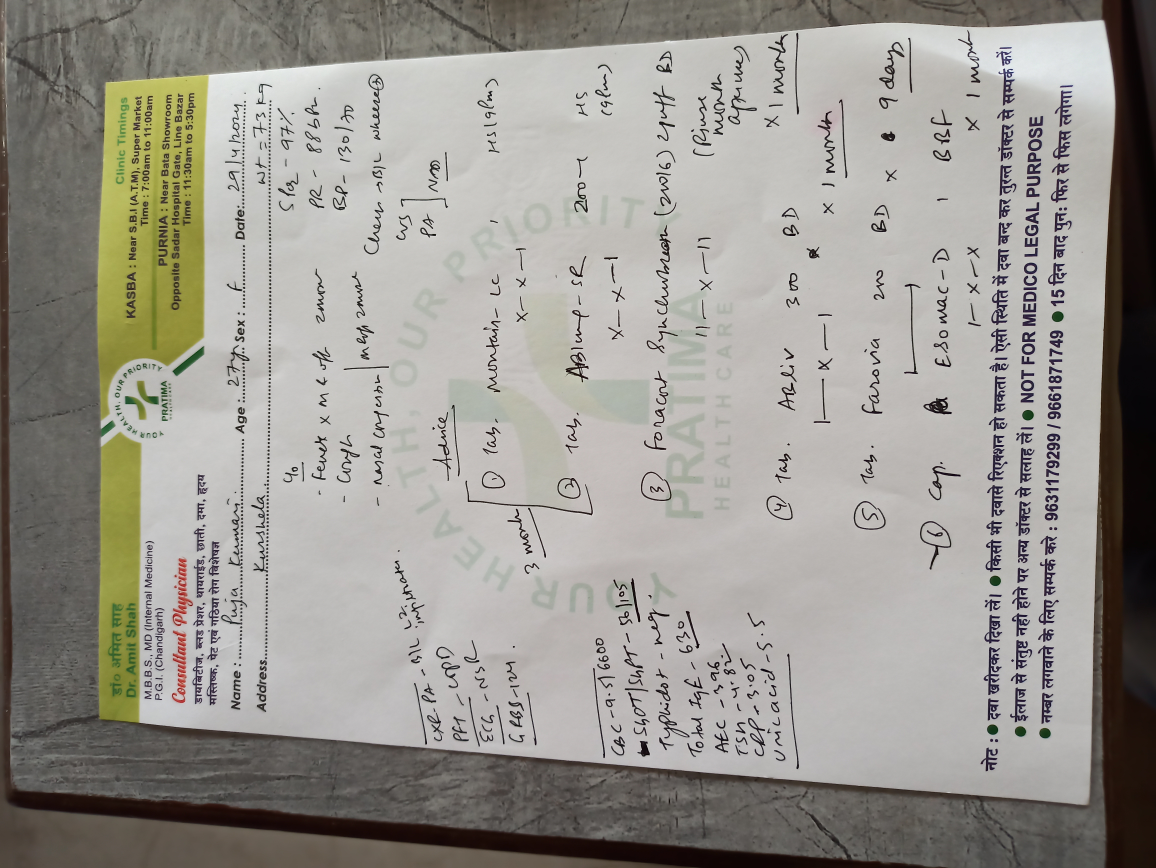 डा० अमित साह
Dr. Amit Shah
M.B.B.S., MD (Internal Medicine)
P.G.I. (Chandigarh)
Consultant Physician
डायबिटीज, ब्लड प्रेशर, थायराईड, छाती, दमा, हृदय
मस्तिष्क, पेट एवं गठिया रोग विशेषज्ञ
YOUR HEALTH, OUR PRIORITY
PRATIMA
HEALTHCARE
Clinic Timings
KASBA : Near S.B.I (A.T.M), Super Market
Time : 7:00am to 11:00am
PURNIA : Near Bata Showroom
Opposite Sadar Hospital Gate, Line Bazar
Time : 11:30am to 5:30pm
Name : Puja Kumari Age : 27y Sex : F Date: 29/4/2024
Address Kurshela Wt = 73 kg
c/o
- Fever
- Cough
- nasal congestion
SPO2 - 97%
PR - 88bpm
BP - 130/70
Chest → B/L wheeze +
CVS
PA
CXR-PA - B/L L2 infiltrates.
PFT - COPD
ECG - NSR
GRBS - 124.
CBC - 9.5/6600
SGOT/SGPT - 56/105
Typhidot - neg.
Total IgE - 630
AEC - 396
TSH - 4.82
CRP - 3.05
Uric acid - 5.5
Advice
3 month
1 Tab. Montair-LC 1 HS (9pm)
x - x - 1
2 Tab. AB Flo-SR 200 - 1 HS (9pm)
x - x - 1
3 Foracort Synchrobreathe (200/6) 2puff BD
11 - x - 11 (Rinse mouth
x 1 month
4 Tab. 300 BD
1 - x - 1 x 1 month
5 Tab. Farovia 200 BD x 9 days
6 Cap. Esomac-D 1 BBF
1 - x - x x 1 month
YOUR HEALTH, OUR PRIORITY
PRATIMA
HEALTHCARE
नोट : ● दवा खरीदकर दिखा लें। ● किसी भी दवासे रिएक्शन हो सकता है। ऐसी स्थिति में दवा बन्द कर तुरन्त डॉक्टर से सम्पर्क करें।
● ईलाज से संतुष्ट नही होने पर अन्य डॉक्टर से सलाह लें। ● NOT FOR MEDICO LEGAL PURPOSE
● नम्बर लगवाने के लिए सम्पर्क करे : 9631179299 / 9661871749 ● 15 दिन बाद पुन: फिर से फिस लगेगा।